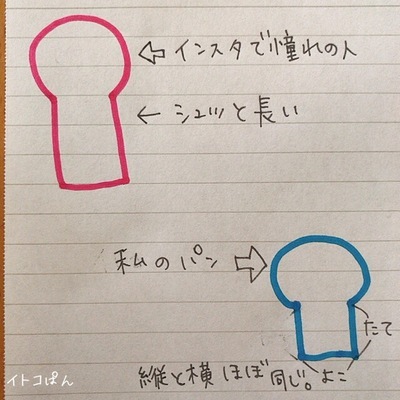 インスタで憧れの人
シュッと長い
私のパン
たて
縦と横ほぼ同じ。よこ
イトコぱん